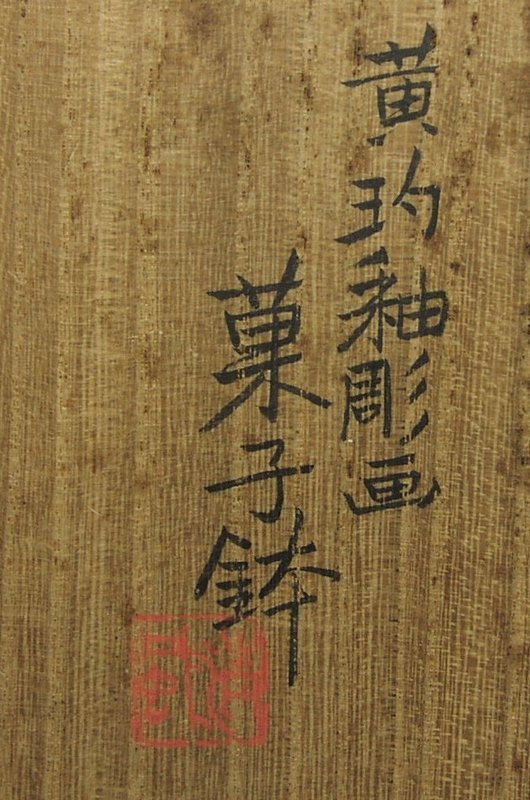 黄玓釉彫画
菓子鉢